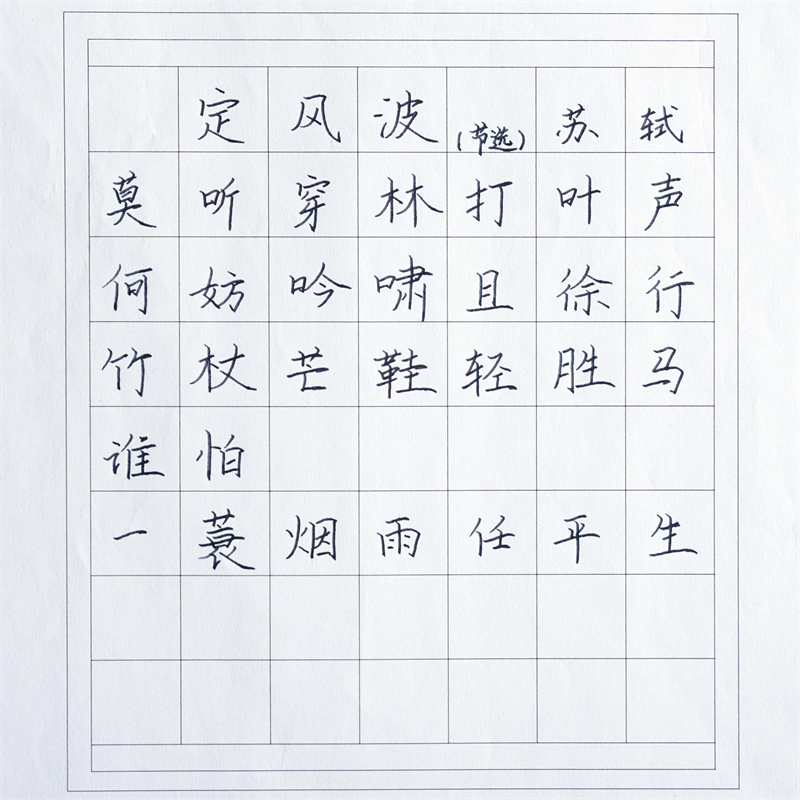 定风波(节选)苏轼
莫听穿林打叶声
何妨吟啸且徐行
竹杖芒鞋轻胜马
谁怕
一蓑烟雨任平生